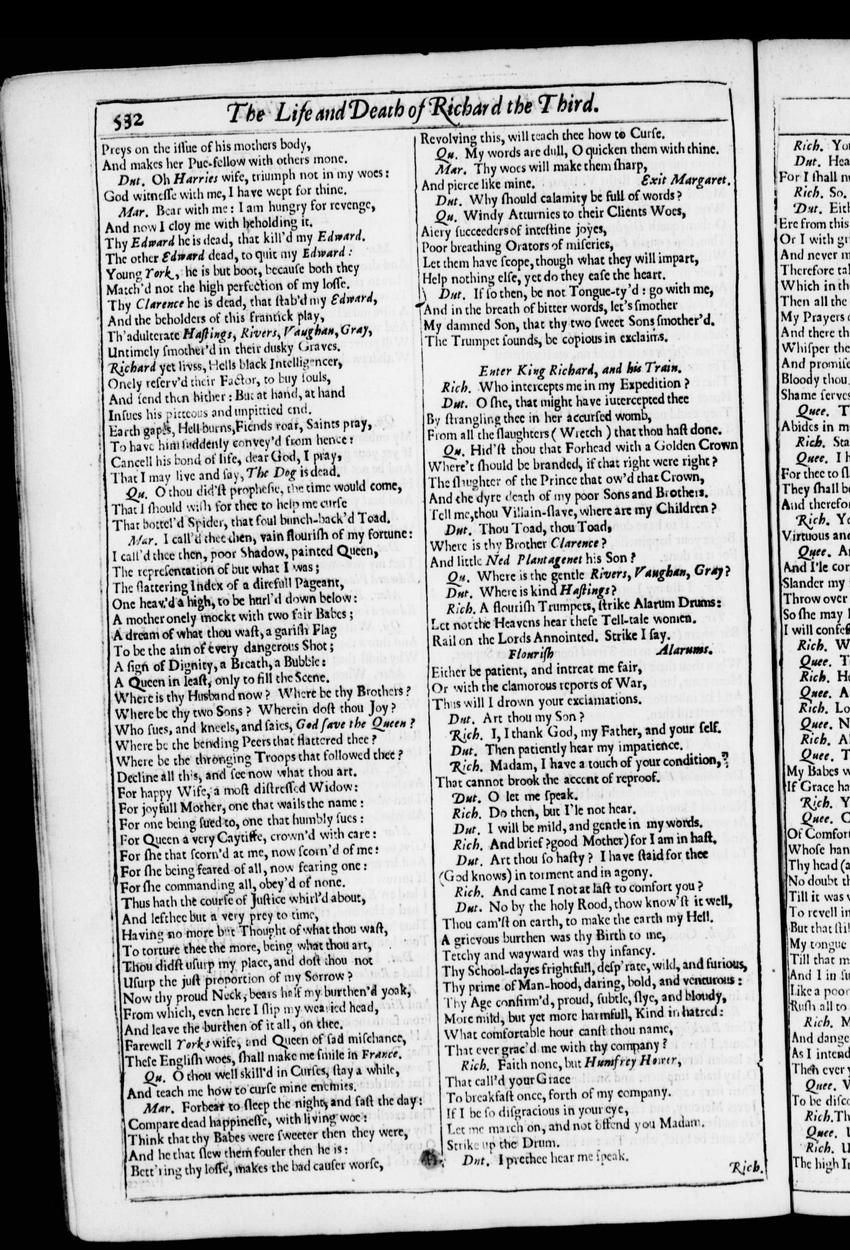 532
The Life and Death of Richard the Third.
Preys on the issue of his mothers body,
And makes her Pue-fellow with others mone.
Dut. Oh Harries wife, triumph not in my woes:
God witnesse with me, I have wept for thine.
Mar. Bear with me: I am hungry for revenge,
And now I cloy me with beholding it.
Thy Edward he is dead, that kill'd my Edward.
The other Edward dead, to quit my Edward:
Young York, he is but boot, because both they
Match'd not the high perfection of my losse.
Thy Clarence he is dead, that stab'd my Edward,
And the beholders of this frantick play,
Th'adulterate Hastings, Rivers, Vaughan, Gray,
Untimely smother'd in their dusky Graves.
Richard yet lives, Hells black Intelligencer,
Onely reserv'd their Factor, to buy souls,
And send then hither: But at hand, at hand
Insues his pitteous and unpittied end.
Earth gapes, Hell burns, Fiends roar, Saints pray,
To have him suddenly convey'd from hence:
Cancell his bond of life, dear God, I pray,
That I may live and say, The Dog is dead.
Qu. O thou did'st prophesie, the time would come,
That I should wish for thee to help me curse
That bottel'd Spider, that foul bunch-back'd Toad.
Mar. I call'd thee then, vain flourish of my fortune:
I call'd thee then, poor Shadow, painted Queen,
The representation of but what I was;
The flattering Index of a direfull Pageant,
One heav'd a high, to be hurl'd down below:
A mother onely mockt with two fair Babes;
A dream of what thou wast, a garish Flag
To be the aim of every dangerous Shot;
A sign of Dignity, a Breath, a Bubble:
A Queen in least, only to fill the Scene.
Where is thy Husband now? Where be thy Brothers?
Where be thy two Sons? Wherein dost thou Joy?
Who sues, and kneels, and saies, God save the Queen?
Where be the bending Peers that flattered thee?
Where be the thronging Troops that followed thee?
Decline all this, and see now what thou art.
For happy Wife, a most distressed Widow:
For joyfull Mother, one that wails the name:
For one being sued to, one that humbly sues:
For Queen a very Caytiffe, crown'd with care:
For she that scorn'd at me, now scorn'd of me:
For she being feared of all, now fearing one:
For she commanding all, obey'd of none.
Thus hath the course of Justice whirl'd about,
And left hee but a very prey to time,
Having no more but Thought of what thou wast,
To torture thee the more, being what thou art,
Thou didst usurp my place, and dost thou not
Usurp the just proportion of my Sorrow?
Now thy proud Neck, bears half my burthen'd yoak,
From which, even here I slip my wearied head,
And leave the burthen of it all, on thee.
Farewell Yorks wife, and Queen of sad mischance,
These English woes, shall make me smile in France.
Qu. O thou well skill'd in Curses, stay a while,
And teach me how to curse mine enemies.
Mar. Forbear to sleep the night, and fast the day:
Compare dead happinesse, with living woe:
Think that thy Babes were sweeter then they were,
And he that slew them fouler then he is:
Bett'ring thy losse, makes the bad causer worse,
Revolving this, will teach thee how to Curse.
Qu. My words are dull, O quicken them with thine.
Mar. Thy woes will make them sharp,
And pierce like mine. Exit Margaret.
Dut. Why should calamity be full of words?
Qu. Windy Atturnies to their Clients Woes,
Aiery succeeders of intestine joyes,
Poor breathing Orators of miseries,
Let them have scope, though what they will impart,
Help nothing else, yet do they ease the heart.
Dut. If so then, be not Tongue-ty'd: go with me,
And in the breath of bitter words, let's smother
My damned Son, that thy two sweet Sons smother'd.
The Trumpet sounds, be copious in exclaims.
Enter King Richard, and his Train.
Rich. Who intercepts me in my Expedition?
Dut. O she, that might have iutercepted thee
By strangling thee in her accursed womb,
From all the slaughters (Wretch) that thou hast done.
Qu. Hid'st thou that Forhead with a Golden Crown
Where't should be branded, if that right were right?
The slaughter of the Prince that ow'd that Crown,
And the dyre death of my poor Sons and Brothers.
Tell me, thou Villain-slave, where are my Children?
Dut. Thou Toad, thou Toad,
Where is thy Brother Clarence?
And little Ned Plantagenet his Son?
Qu. Where is the gentle Rivers, Vaughan, Gray?
Dut. Where is kind Hastings?
Rich. A flourish Trumpets, strike Alarum Drums:
Let not the Heavens hear these Tell-tale women.
Rail on the Lords Annointed. Strike I say.
Flourish Alarums.
Either be patient, and intreat me fair,
Or with the clamorous reports of War,
Thus will I drown your exclamations.
Dut. Art thou my Son?
Rich. I, I thank God, my Father, and your self.
Dut. Then patiently hear my impatience.
Rich. Madam, I have a touch of your condition,
That cannot brook the accent of reproof.
Dut. O let me speak.
Rich. Do then, but I'le not hear.
Dut. I will be mild, and gentle in my words.
Rich. And brief ?good Mother) for I am in hast.
Dut. Art thou so hasty? I have staid for thee
(God knows) in torment and in agony.
Rich. And came I not at last to comfort you?
Dut. No by the holy Rood, thou know'st it well,
Thou cam'st on earth, to make the earth my Hell.
A grievous burthen was thy Birth to me,
Tetchy and wayward was thy infancy.
Thy School-dayes frightfull, desp'rate, wild, and furious,
Thy prime of Man-hood, daring, bold, and venturous:
Thy Age confirm'd, proud, subtle, slye, and bloudy,
More mild, but yet more harmfull, Kind in hatred:
What comfortable hour canst thou name,
That ever grac'd me with thy company?
Rich. Faith none, but Humfrey Hower,
That call'd your Grace
To breakfast once, forth of my company.
If I be so disgracious in your eye,
Let me march on, and not offend you Madam.
Strike up the Drum.
Dut. I prethee hear me speak.
Rich.
Rich. Yo
Dut. Hea
For I shall n
Rich. So.
Dut. Eith
Ere from this
Or I with gr
And never m
Therefore tak
Which in th
Then all the
My Prayers
And there th
Whisper the
And promise
Bloody thou
Shame serves
Quee. T
Abides in m
Rich. Sta
Quee. I h
For thee to sl
They shall be
And therefor
Rich. Yo
Virtuous and
Quee. An
And I'le cor
Slander my
Throw over
So she may l
I will confes
Rich. W
Quee. T
Rich. He
Quee. A
Rich. Lo
Quee. N
Rich. Al
Quee. T
My Babes w
If Grace ha
Rich. Y
Quee. C
Of Comfort
Whose han
Thy head (a
No doubt th
Till it was w
To revell in
But that stil
My tongue
Till that m
And I in su
Like a poor
Rush all to
Rich. M
And dange
As I intend
Then ever y
Quee. V
To be disco
Rich. Th
Quee. U
Rich. U
The high I